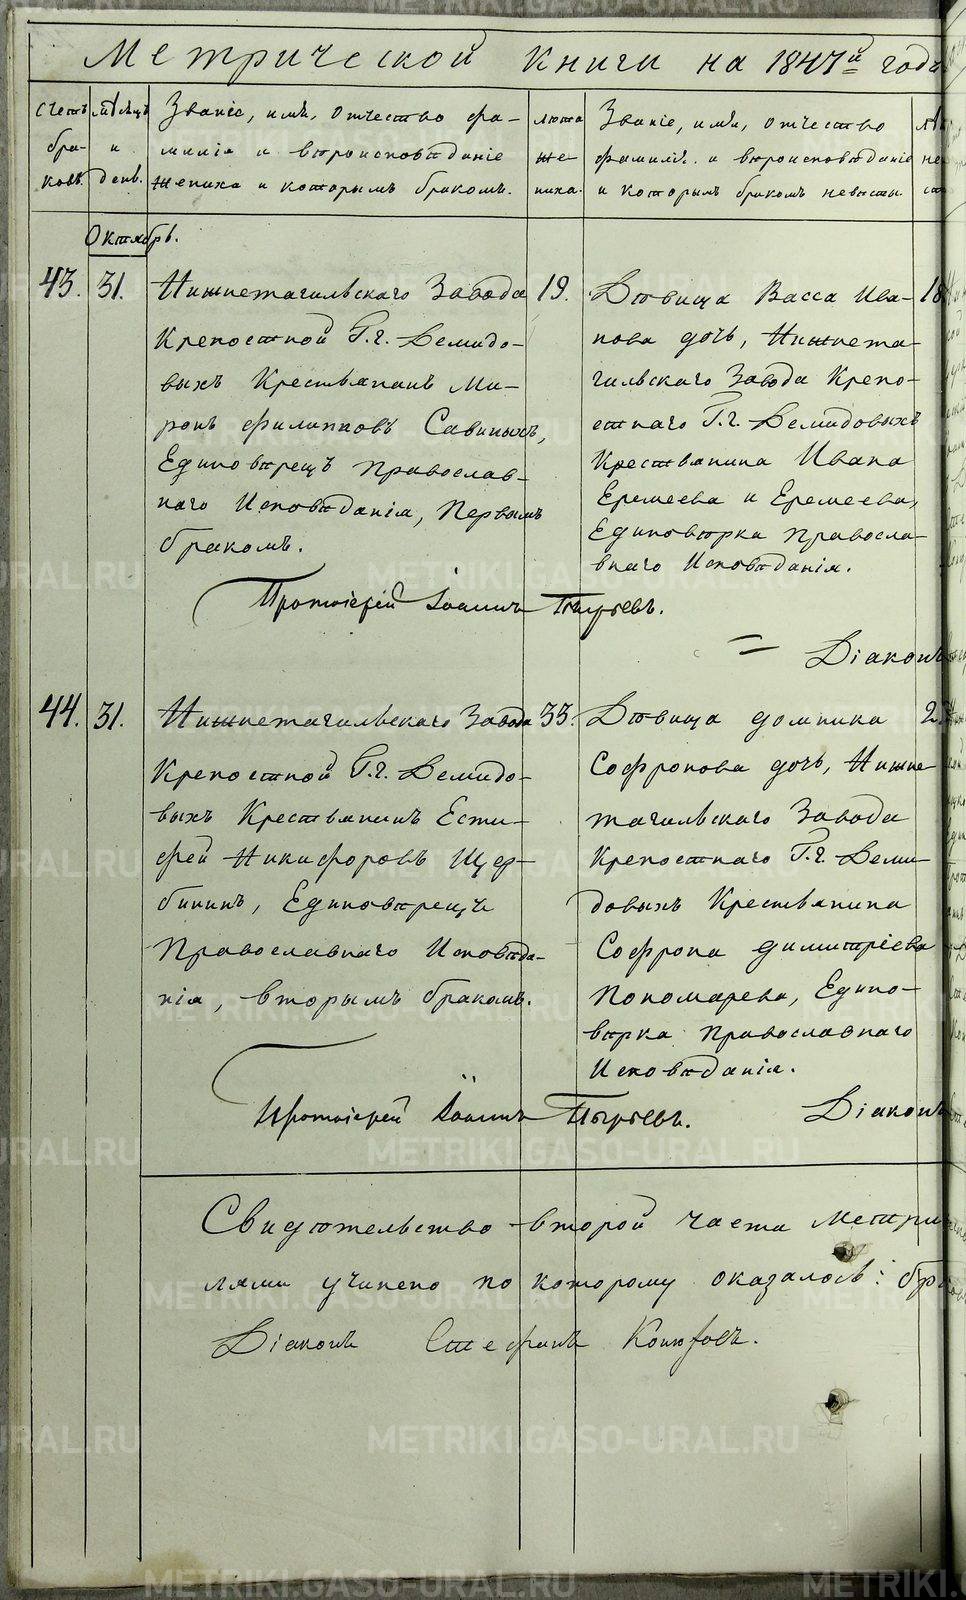 Метрической Книги на 1847й года
Счетъ бра- ковъ.
Мѣсяцъ и день.
Званіе, имя, отчество фа-
милія и вѣроисповѣданіе
жениха и которымъ бракомъ.
Лѣта же- ниха.
Званіе, имя, отчество
фамилія и вѣроисповѣданіе
и которымъ бракомъ невѣсты
Октябрь.
43. 31.
Нижнетагильскаго Завода
Крепостной Г.г. Демидо-
выхъ Крестьянинъ Ми-
ронъ Филипповъ Савиныхъ,
Единовѣрецъ Православ-
наго Исповѣданія, Первымъ
бракомъ.
19.
Дѣвица Васса Ива-
нова дочь, Нижнета-
гильскаго Завода Крепо-
стнаго Г.г. Демидовыхъ
Крестьянина Ивана
Еремеева и Еремеева,
Единовѣрка Правосла-
внаго Исповѣданія.
18
Протоіерей Іоаннъ Пырьевъ.
Діаконъ
44. 31.
Нижнетагильскаго Завода
Крепостной Г.г. Демидо-
выхъ Крестьянинъ Ести-
фей Никифоровъ Щер-
бининъ, Единовѣрецъ
Православнаго Исповѣда-
нія, вторымъ бракомъ.
33.
Дѣвица Домника
Софронова дочь, Нижне
тагильскаго Завода
Крепостнаго Г.г. Деми-
довыхъ Крестьянина
Софрона Димитріева
Пономарева, Едино-
вѣрка Православнаго
Исповѣданія.
Протоіерей Іоаннъ Пырьевъ.
Діаконъ
Свидѣтельство второй части Метри
лями учинено по которому оказалось: бра
Діаконъ Стефанъ
METRIKI.GASO-URAL.RU